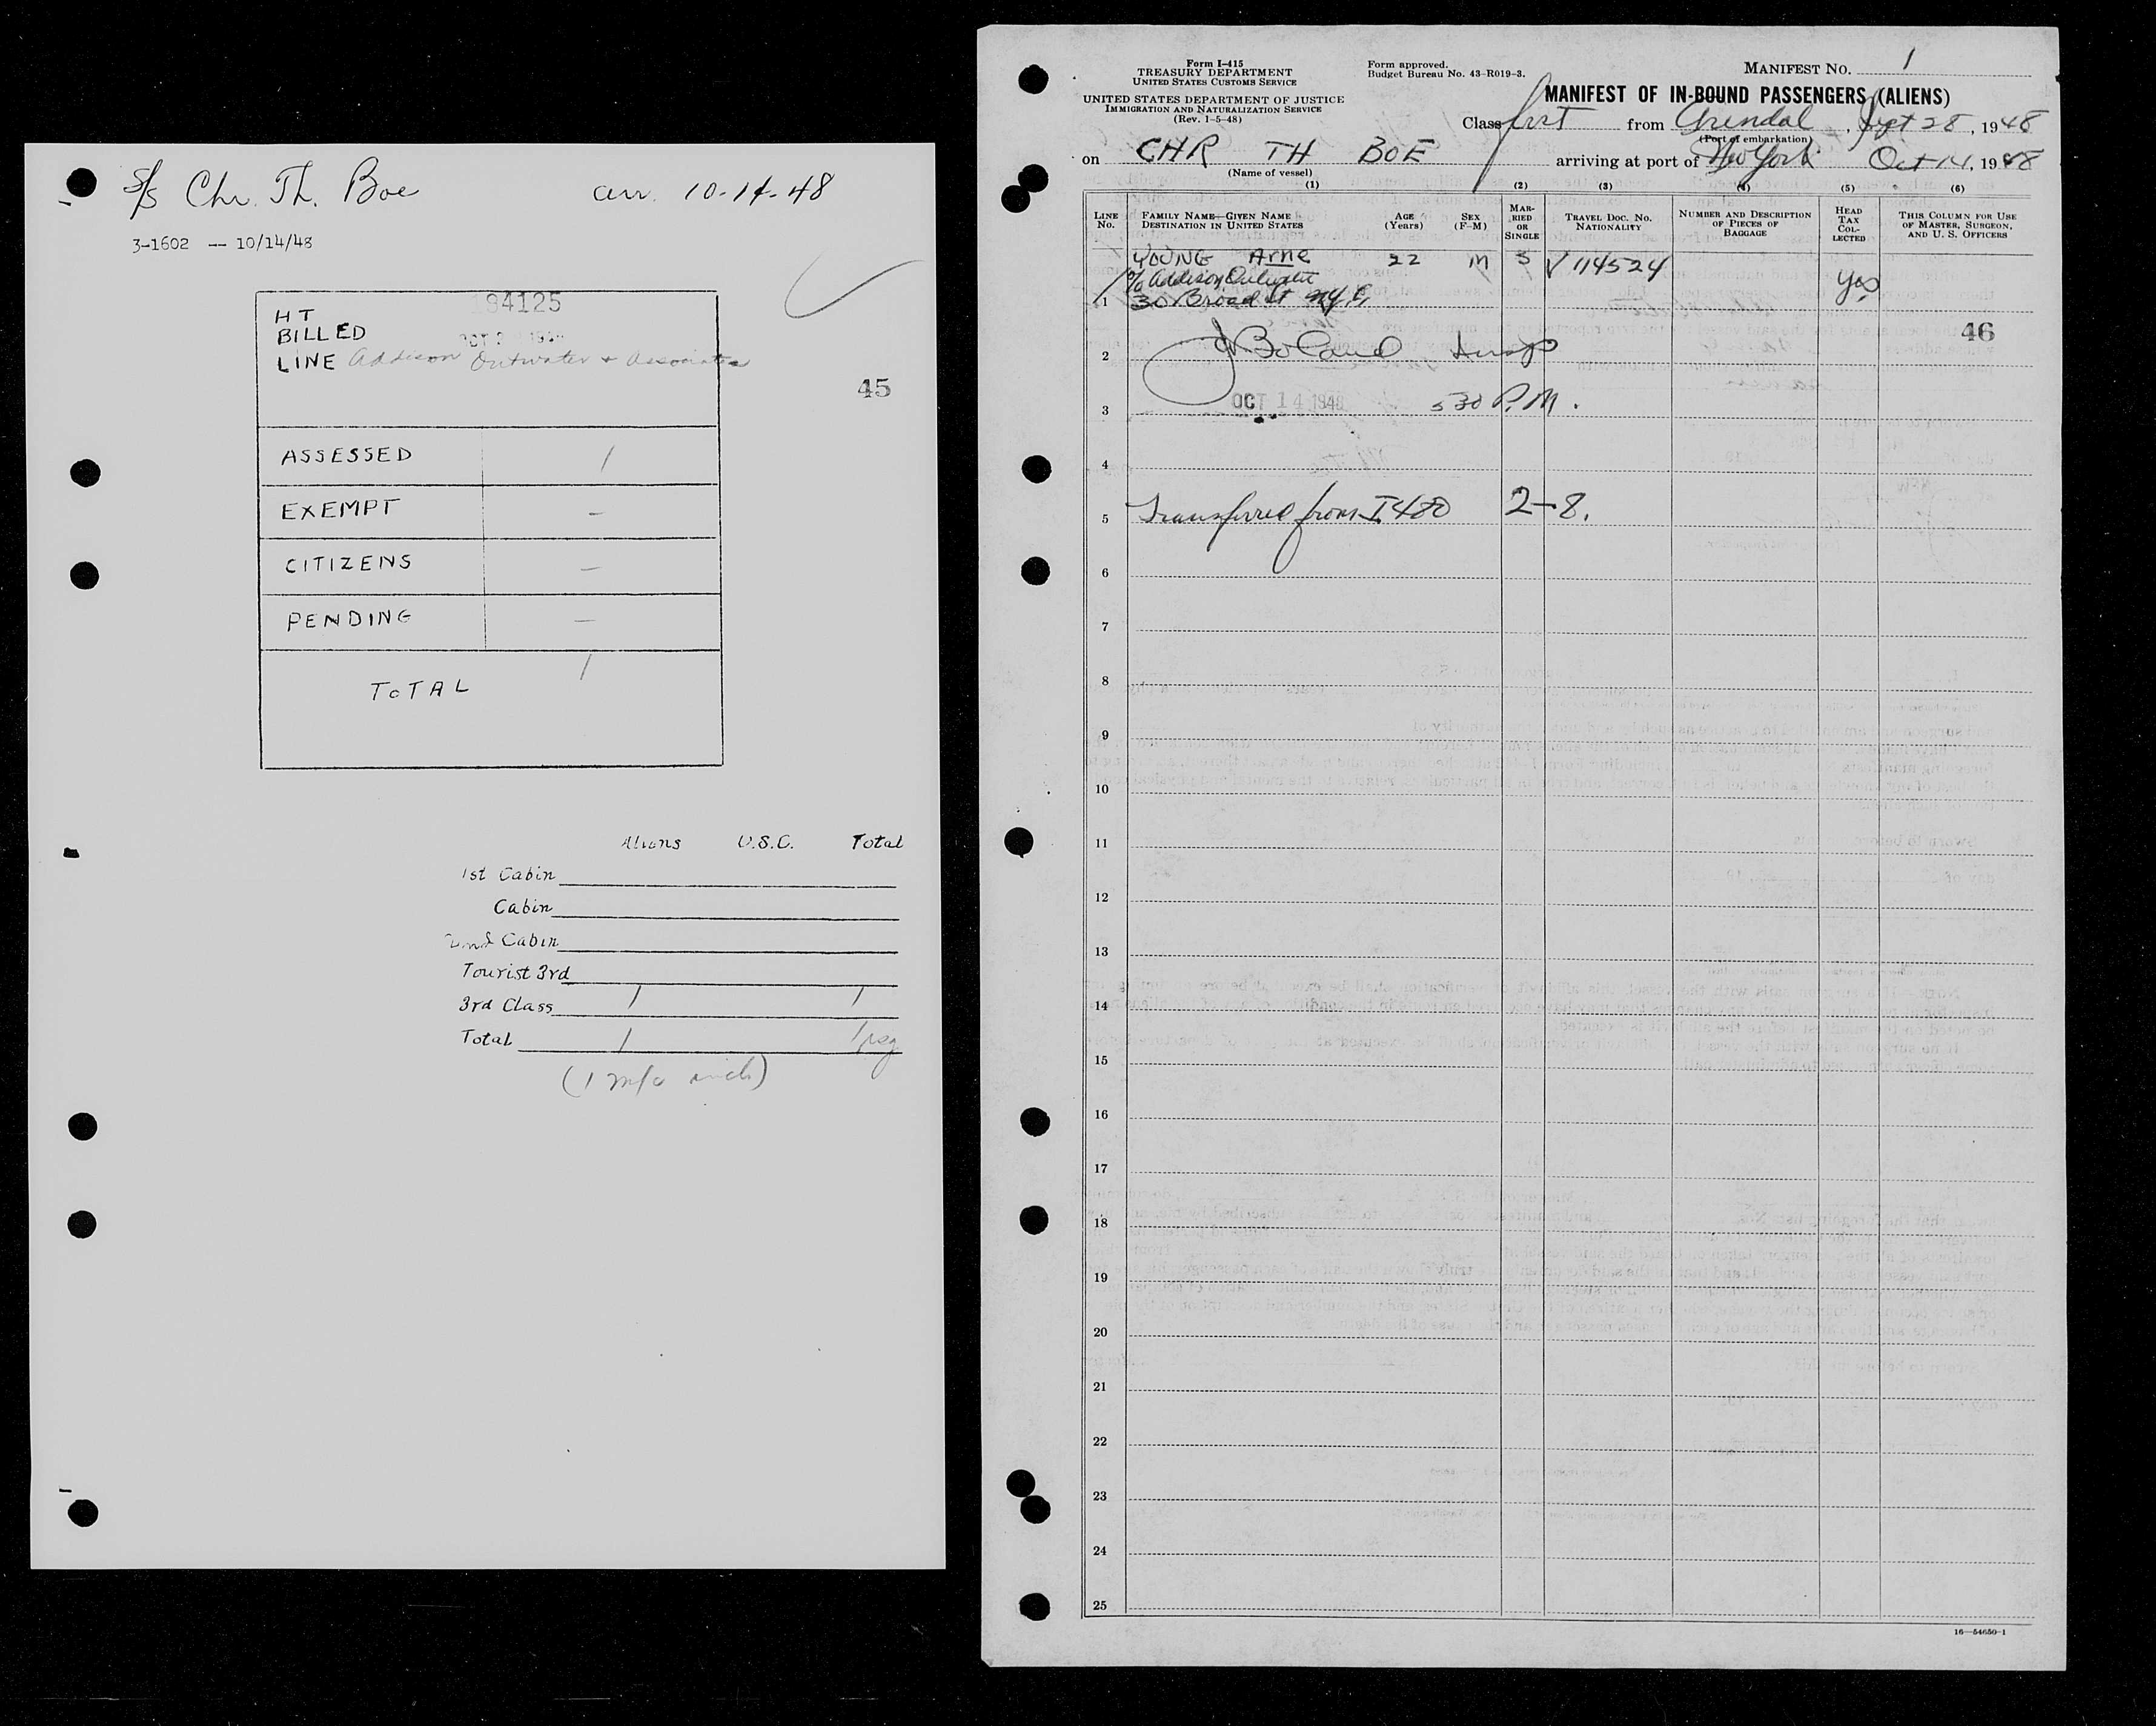 S/S Chr. Th. Boe arr. 10-14-48
3-1602 -- 10/14/48
94125
HT
BILLED
OCT
LINE Addison Outwater + Associates
45
ASSESSED 1
EXEMPT —
CITIZENS —
PENDING —
TOTAL 1
Aliens U.S.C. Total
1st Cabin
Cabin
2nd Cabin
Tourist 3rd
3rd Class 1 1
Total 1 1
Form I-415
TREASURY DEPARTMENT
UNITED STATES CUSTOMS SERVICE
UNITED STATES DEPARTMENT OF JUSTICE
IMMIGRATION AND NATURALIZATION SERVICE
(Rev. 1-5-48)
Form approved.
Budget Bureau No. 43-R019-3.
MANIFEST No. 1
MANIFEST OF IN-BOUND PASSENGERS (ALIENS)
Class first from Arendal, Sept 28, 1948
(Port of embarkation)
on CHR TH BOE arriving at port of New York Oct 14, 1948
(Name of vessel)
(1) (2) (3) (4) (5) (6)
LINE No.
FAMILY NAME—GIVEN NAME
DESTINATION IN UNITED STATES
AGE (Years)
SEX (F-M)
MARRIED OR SINGLE
TRAVEL DOC. NO. NATIONALITY
NUMBER AND DESCRIPTION OF PIECES OF BAGGAGE
HEAD TAX COLLECTED
THIS COLUMN FOR USE OF MASTER, SURGEON, AND U. S. OFFICERS
YOUNG Arne 22 M S V 114524 Yes
c/o Addison Outwater
1 30 Broad St N.Y.C.
46
2 J. Boland Insp
3 OCT 14 1948 5 30 P.M.
4
5 Transferred from I 480 2-8.
6
7
8
9
10
11
12
13
14
15
16
17
18
19
20
21
22
23
24
25
16—54650-1